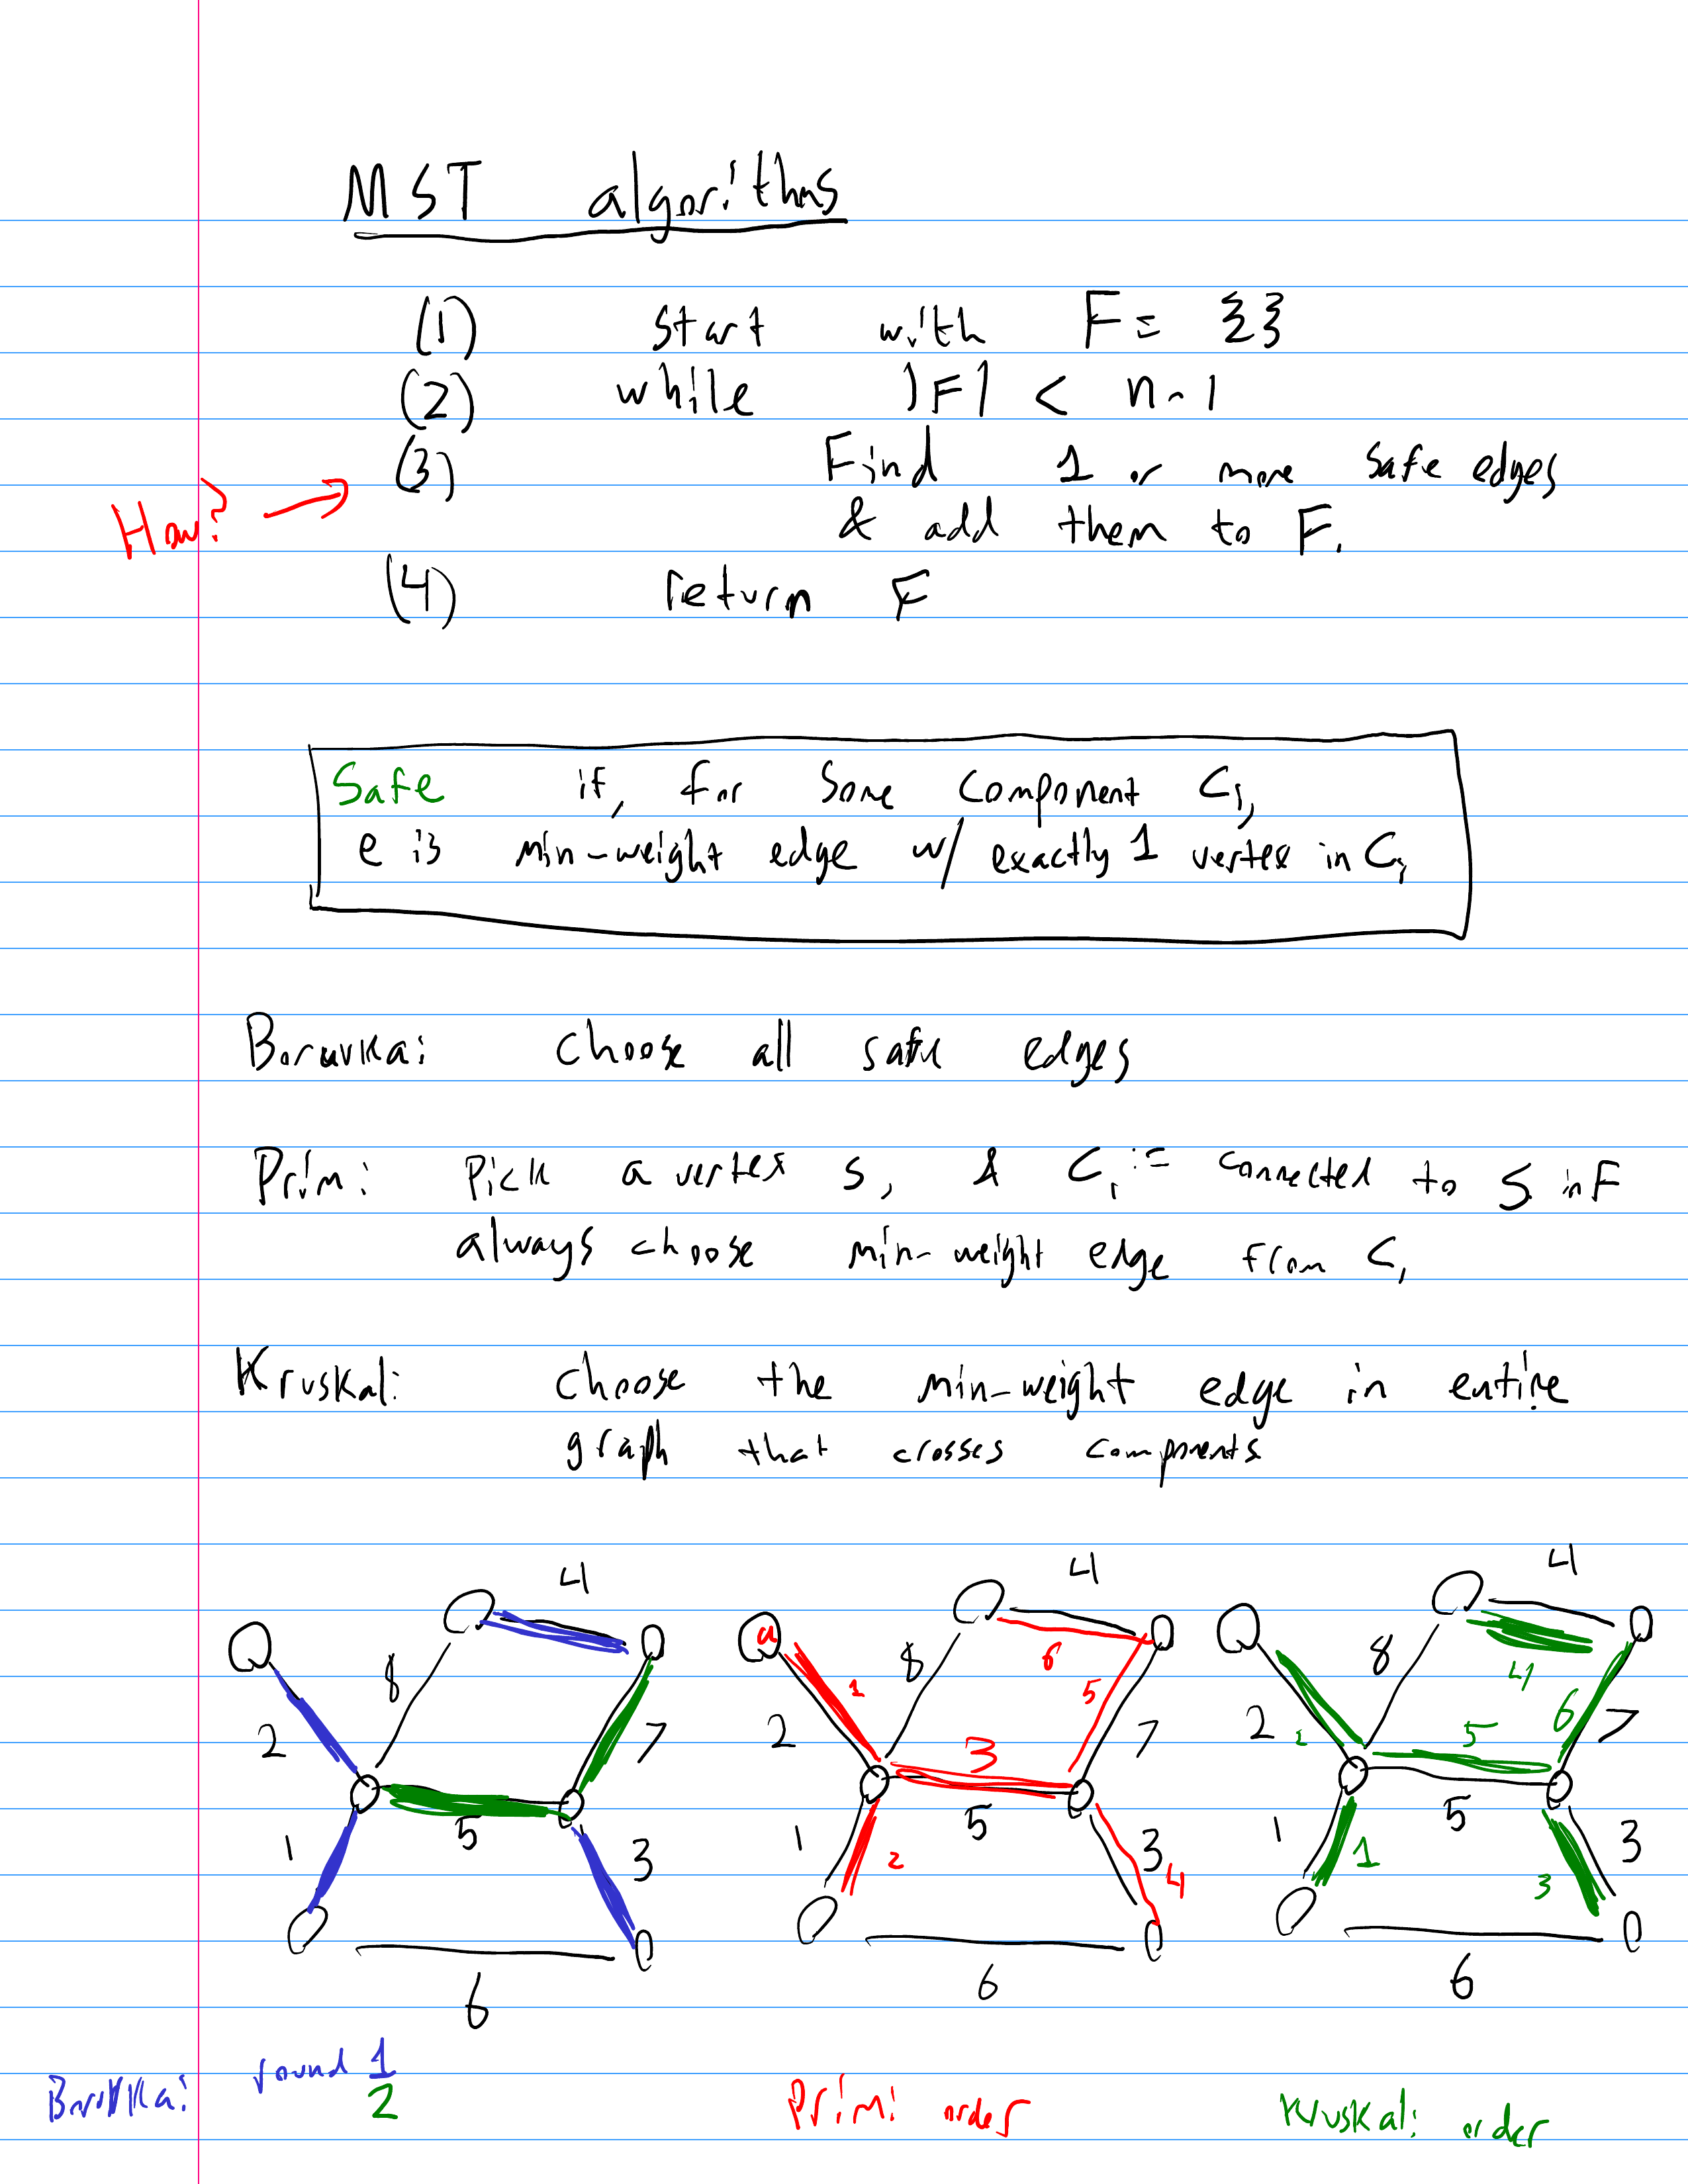 MST algorithms
(1) start with F = {}
(2) while |F| < n-1
(3) Find 1 or more safe edges
How? →
& add them to F.
(4) return F
Safe if, for some component C1,
e is min-weight edge w/ exactly 1 vertex in C1
Boruvka: choose all safe edges
Prim: Pick a vertex s, & C1 := connected to S in F
always choose min-weight edge from C1
Kruskal: choose the min-weight edge in entire
graph that crosses components
4 8 2 7 5 1 3 6
4 a 6 8 1 5 2 3 7 5 1 2 3 4 6
4 8 4 2 2 5 6 7 1 1 5 3 3 6
Boruvka: round 1
2
Prim: order
Kruskal: order